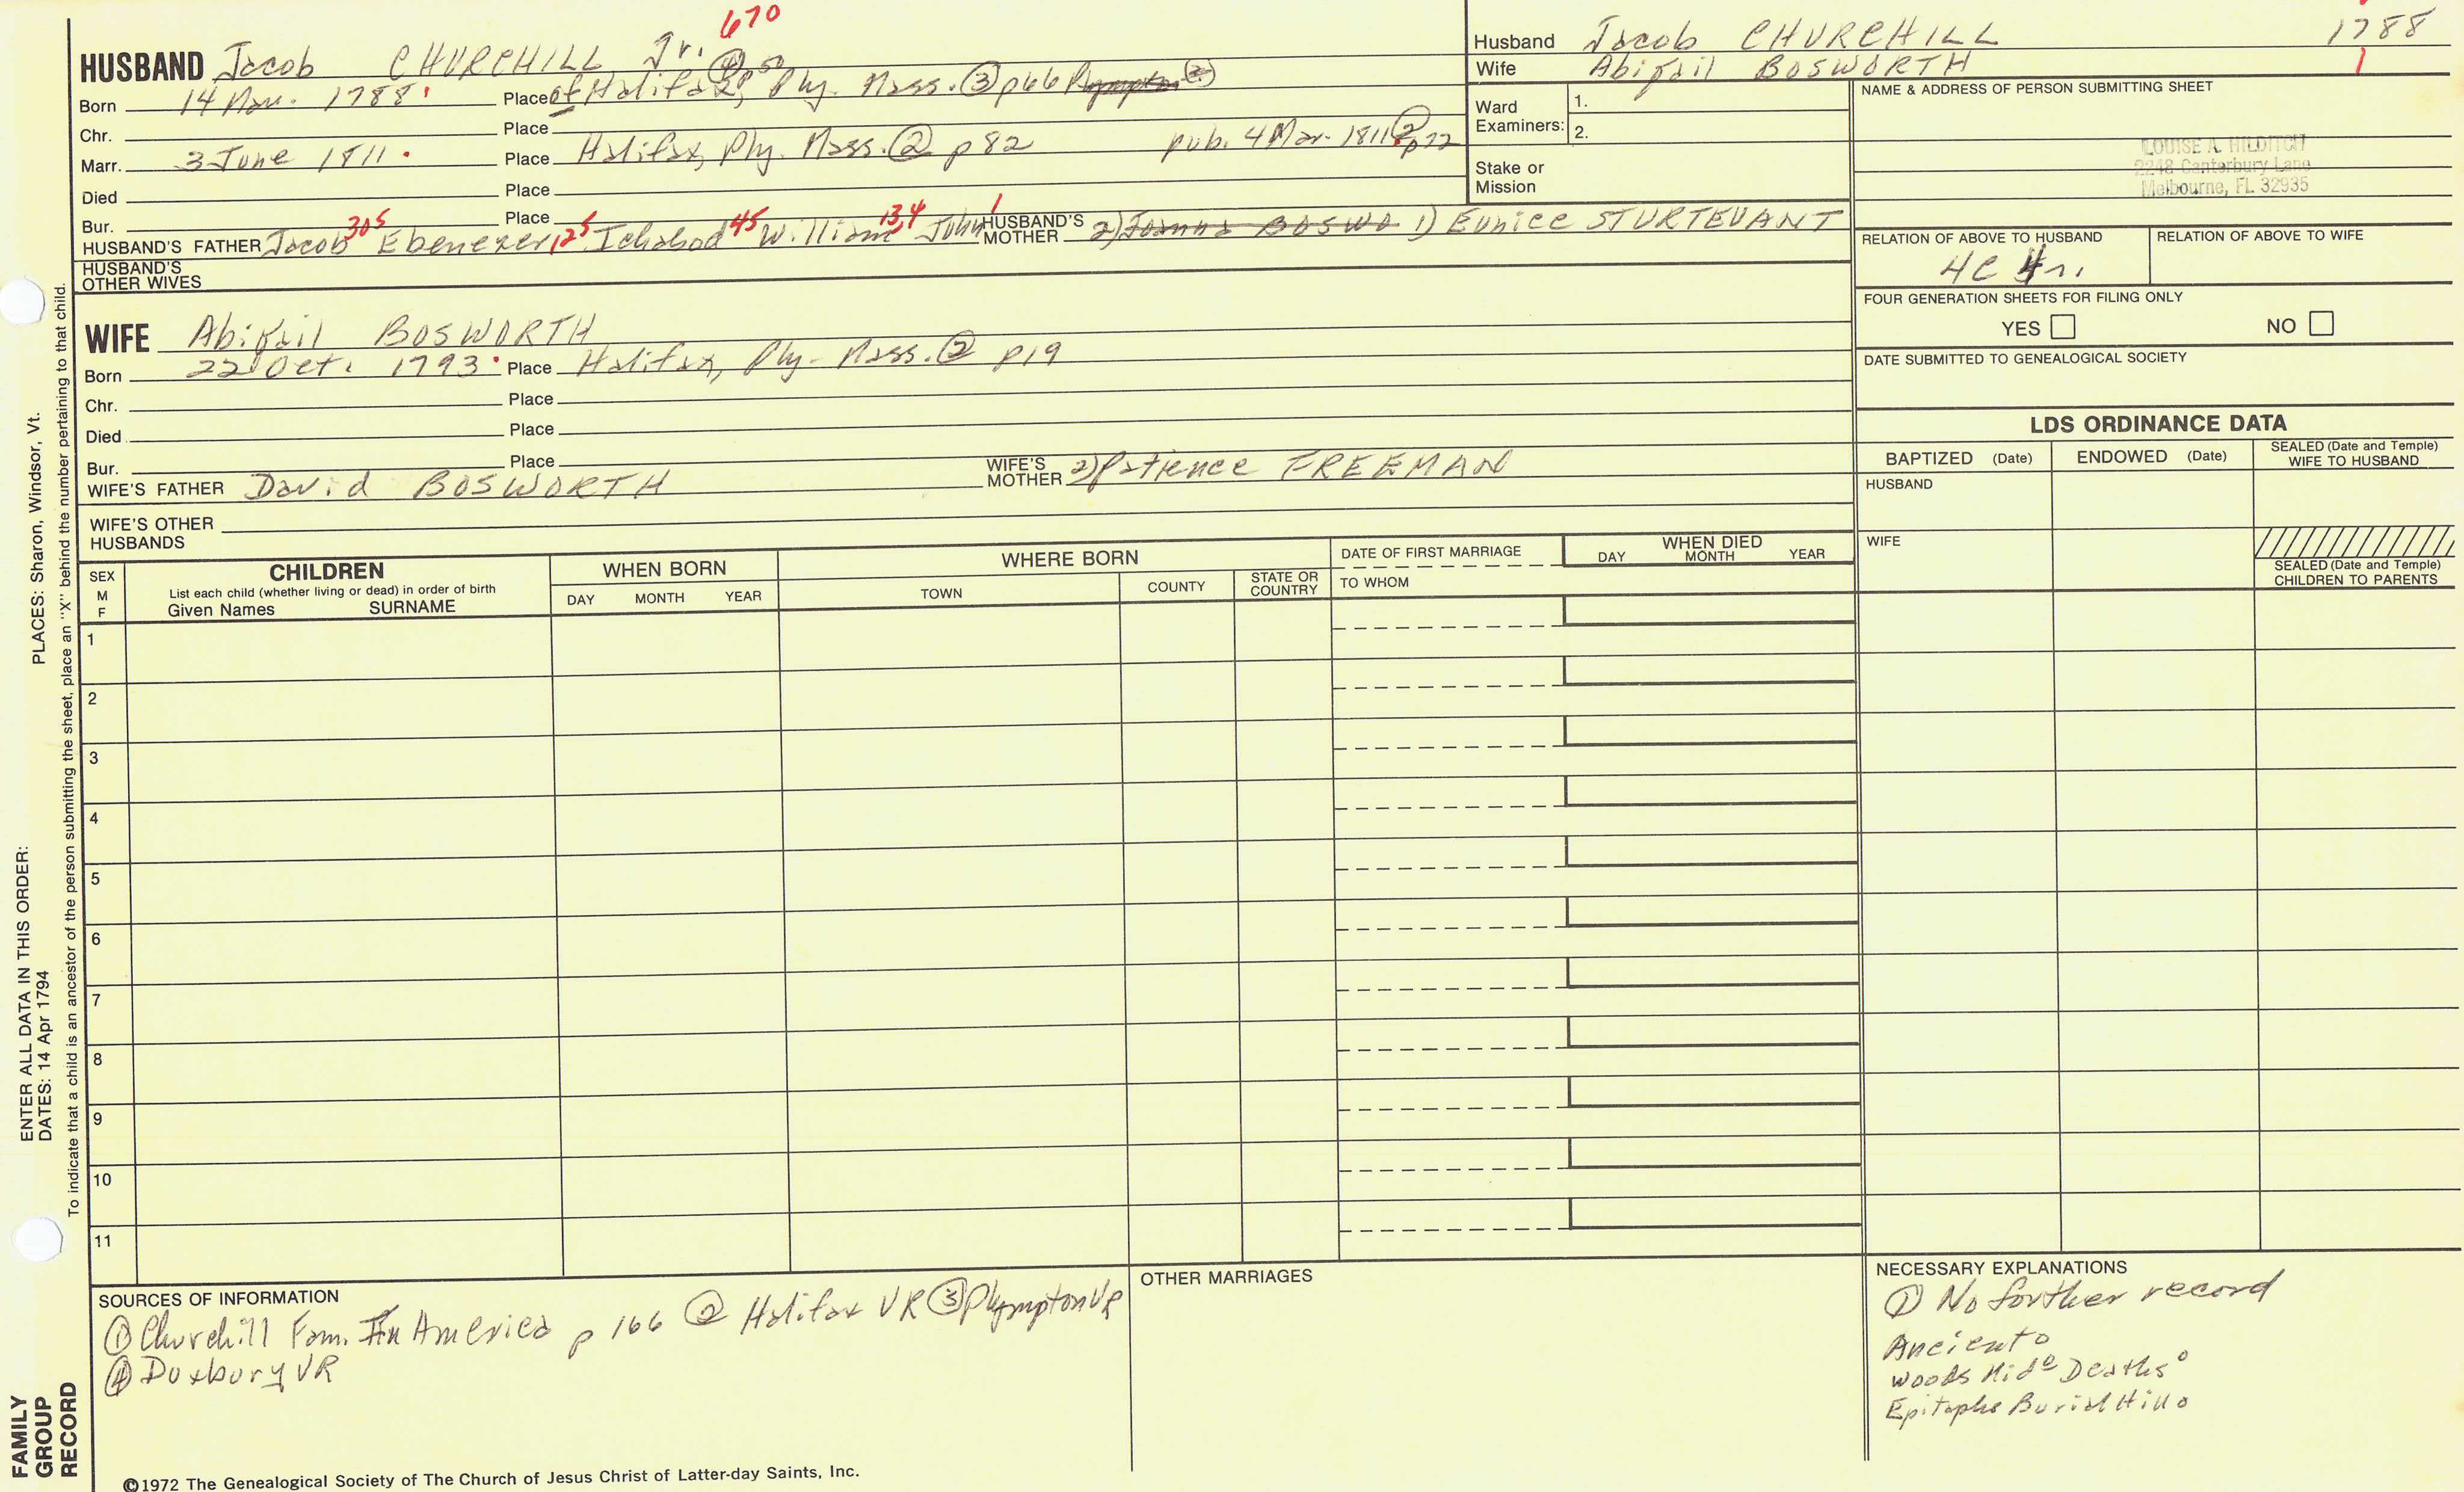 670
HUSBAND Jacob CHURCHILL Jr. ④ p50
Born 14 Nov. 1788 Place of Halifax, Ply. Mass. ③ p66 Plympton ②
Chr. Place
Marr. 3 June 1811 Place Halifax, Ply. Mass. ② p82 pub. 4 Mar. 1811 ② p72
Died Place
Bur. Place
HUSBAND'S FATHER Jacob 305 Ebenezer 125 Ichabod 45 William 134 John 1 HUSBAND'S MOTHER 2) Joanna BOSWO 1) Eunice STURTEVANT
HUSBAND'S OTHER WIVES
WIFE Abigail BOSWORTH
Born 22 Oct. 1793 Place Halifax, Ply. Mass. ② p19
Chr. Place
Died Place
Bur. Place
WIFE'S FATHER David BOSWORTH WIFE'S MOTHER 2) Patience FREEMAN
WIFE'S OTHER HUSBANDS
Husband Jacob CHURCHILL 1788
Wife Abigail BOSWORTH 1
Ward Examiners: 1.
2.
Stake or Mission
NAME & ADDRESS OF PERSON SUBMITTING SHEET
LOUISE A. HILDITCH
2248 Canterbury Lane
Melbourne, FL 32935
RELATION OF ABOVE TO HUSBAND RELATION OF ABOVE TO WIFE
4C 4r.
FOUR GENERATION SHEETS FOR FILING ONLY
YES NO
DATE SUBMITTED TO GENEALOGICAL SOCIETY
LDS ORDINANCE DATA
BAPTIZED (Date) ENDOWED (Date) SEALED (Date and Temple) WIFE TO HUSBAND
HUSBAND
WIFE
SEALED (Date and Temple)
CHILDREN TO PARENTS
SEX
M
F
CHILDREN
List each child (whether living or dead) in order of birth
Given Names SURNAME
WHEN BORN
DAY MONTH YEAR
WHERE BORN
TOWN COUNTY STATE OR COUNTRY
DATE OF FIRST MARRIAGE
TO WHOM
WHEN DIED
DAY MONTH YEAR
1
2
3
4
5
6
7
8
9
10
11
SOURCES OF INFORMATION
① Churchill Fam. In America p 166 ② Halifax VR ③ Plympton VR
④ Duxbury VR
OTHER MARRIAGES
NECESSARY EXPLANATIONS
① No forther record
Ancient
Woods Mid Deaths
Epitaphs Burial Hill
©1972 The Genealogical Society of The Church of Jesus Christ of Latter-day Saints, Inc.
ENTER ALL DATA IN THIS ORDER:
DATES: 14 Apr 1794 PLACES: Sharon, Windsor, Vt.
To indicate that a child is an ancestor of the person submitting the sheet, place an "X" behind the number pertaining to that child.
FAMILY
GROUP
RECORD